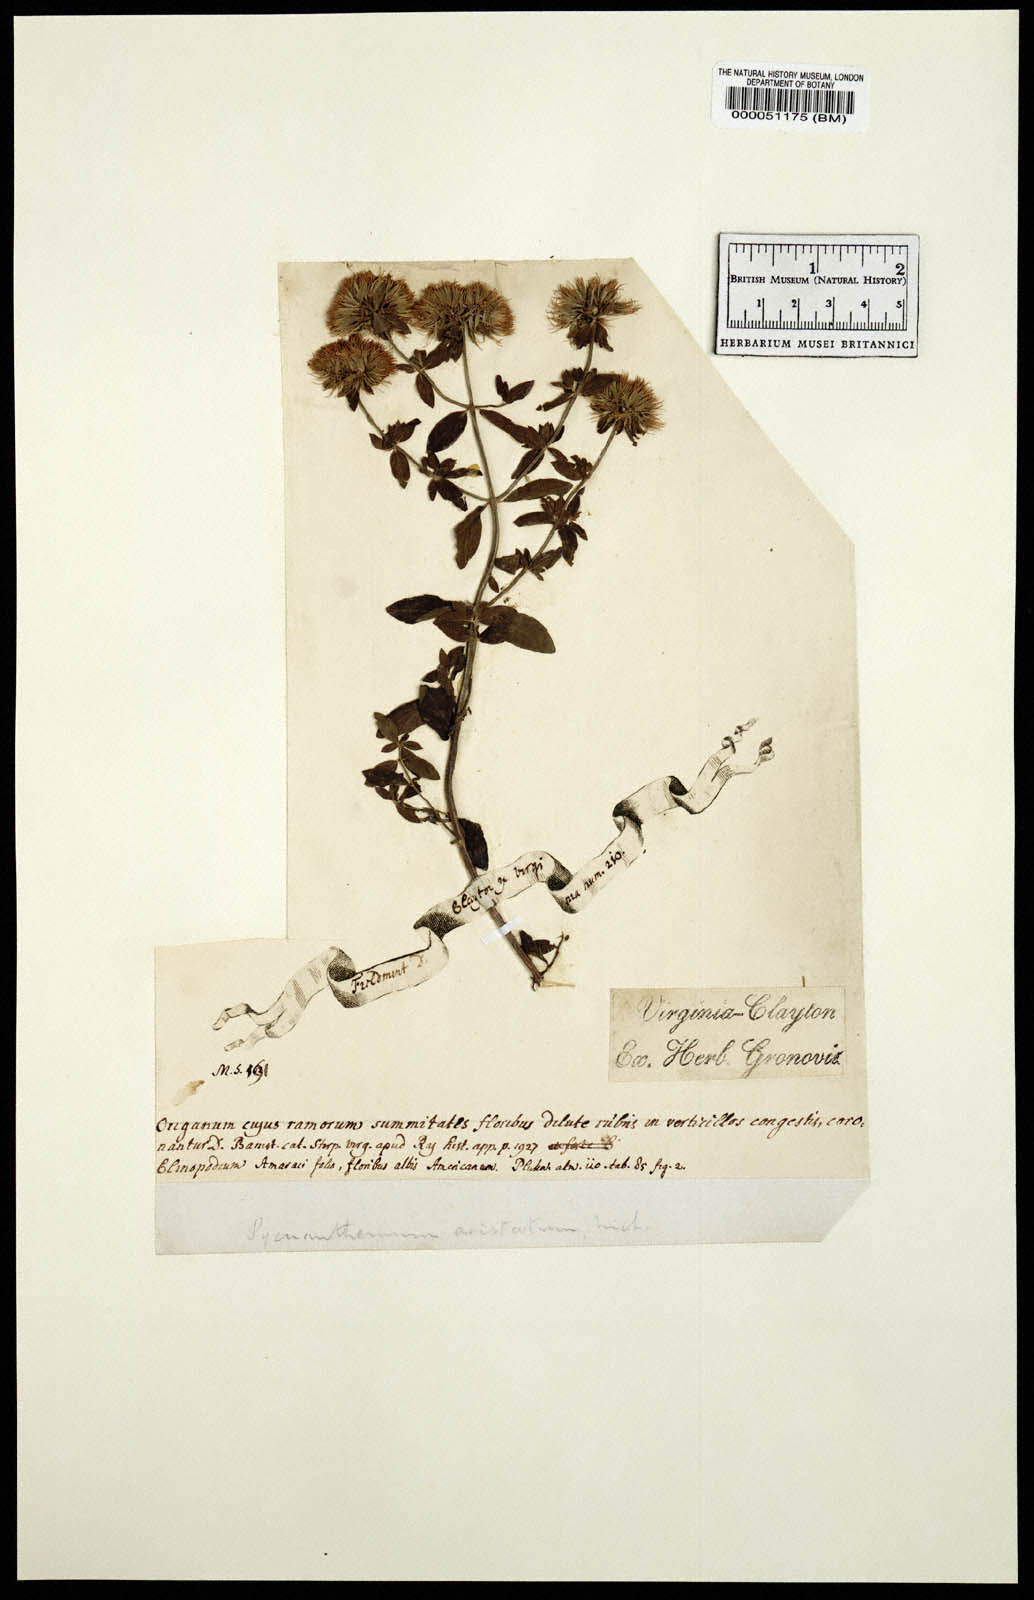 THE NATURAL HISTORY MUSEUM, LONDON
DEPARTMENT OF BOTANY
000051175 (BM)
1 2
BRITISH MUSEUM (NATURAL HISTORY)
1 2 3 4 5
HERBARIUM MUSEI BRITANNICI
Clayton ex Virgi
nia num. 210.
Virginia-Clayton
Ex. Herb. Gronovii
M.S.
Origanum cujus ramorum summitates floribus dilute rubris in verticillos congestis, coro,
nantur D. Banist. cat. Stirp. virg. apud Raj hist. app. p. 1927
Clinopodium Amaraci folio, floribus albis Americanum. Pluk. alm. 110. tab. 85 fig. 2.
Pycnanthemum aristatum, Mich.